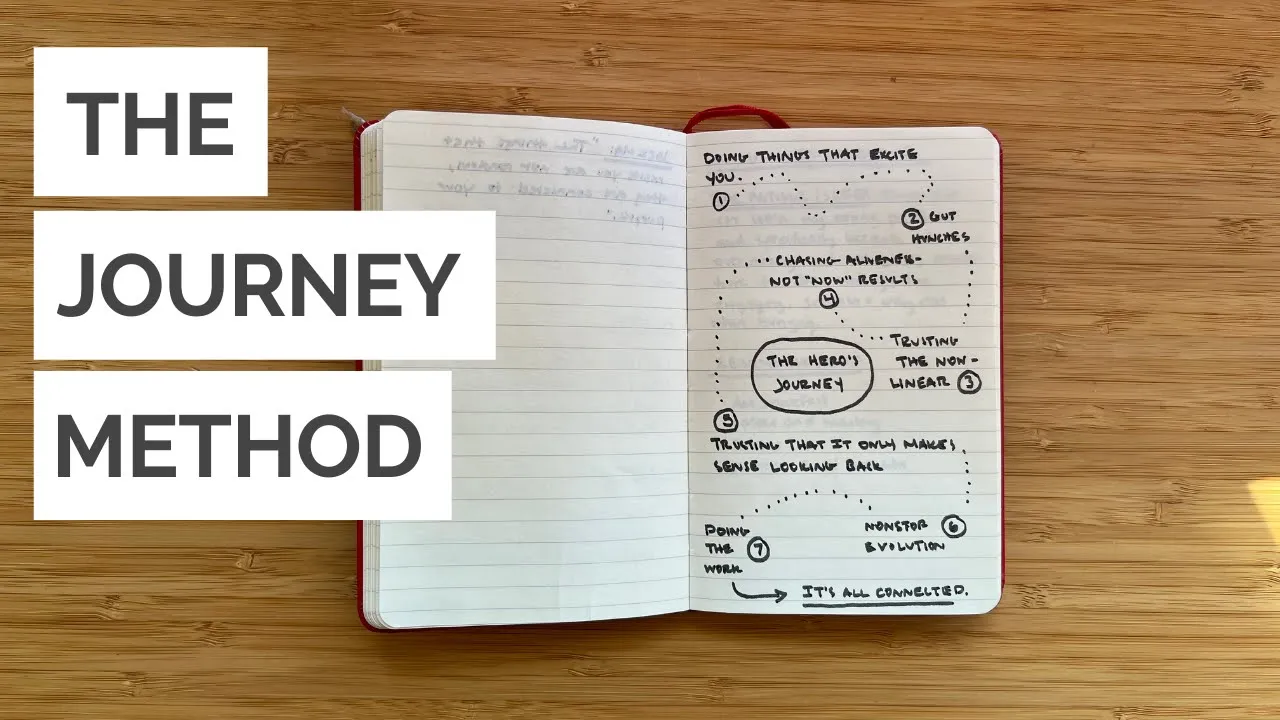 THE
JOURNEY
METHOD
DOING THINGS THAT EXCITE
YOU.
①
② GUT
HUNCHES
CHASING ALIVENESS-
NOT "NOW" RESULTS
④
TRUSTING
THE NON-
LINEAR ③
THE HERO'S
JOURNEY
⑤
TRUSTING THAT IT ONLY MAKES
SENSE LOOKING BACK
NONSTOP ⑥
EVOLUTION
DOING
THE ⑦
WORK
IT'S ALL CONNECTED.